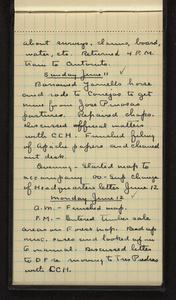 about surveys, claims, board,
water, etc. Returned 4 P.M.
train to Antonito.
Sunday June 11
Borrowed Yarnell's horse
and rode to Conejos to get
mine from Jose
pastures. Repaired chaps.
Discussed official matters
with CCH. Finished filing
of Apache papers and cleaned
out desk.
Evening - Started map to
accompany change
of Headquarters letter June 12
Monday June 12
A.M. - Finished map.
P.M. - Entered timber sale
areas on Forest map. Read up
misc. cases and looked up in
G manual. Discussed letter
to DF re moving to Tres Piedras
with CCH.